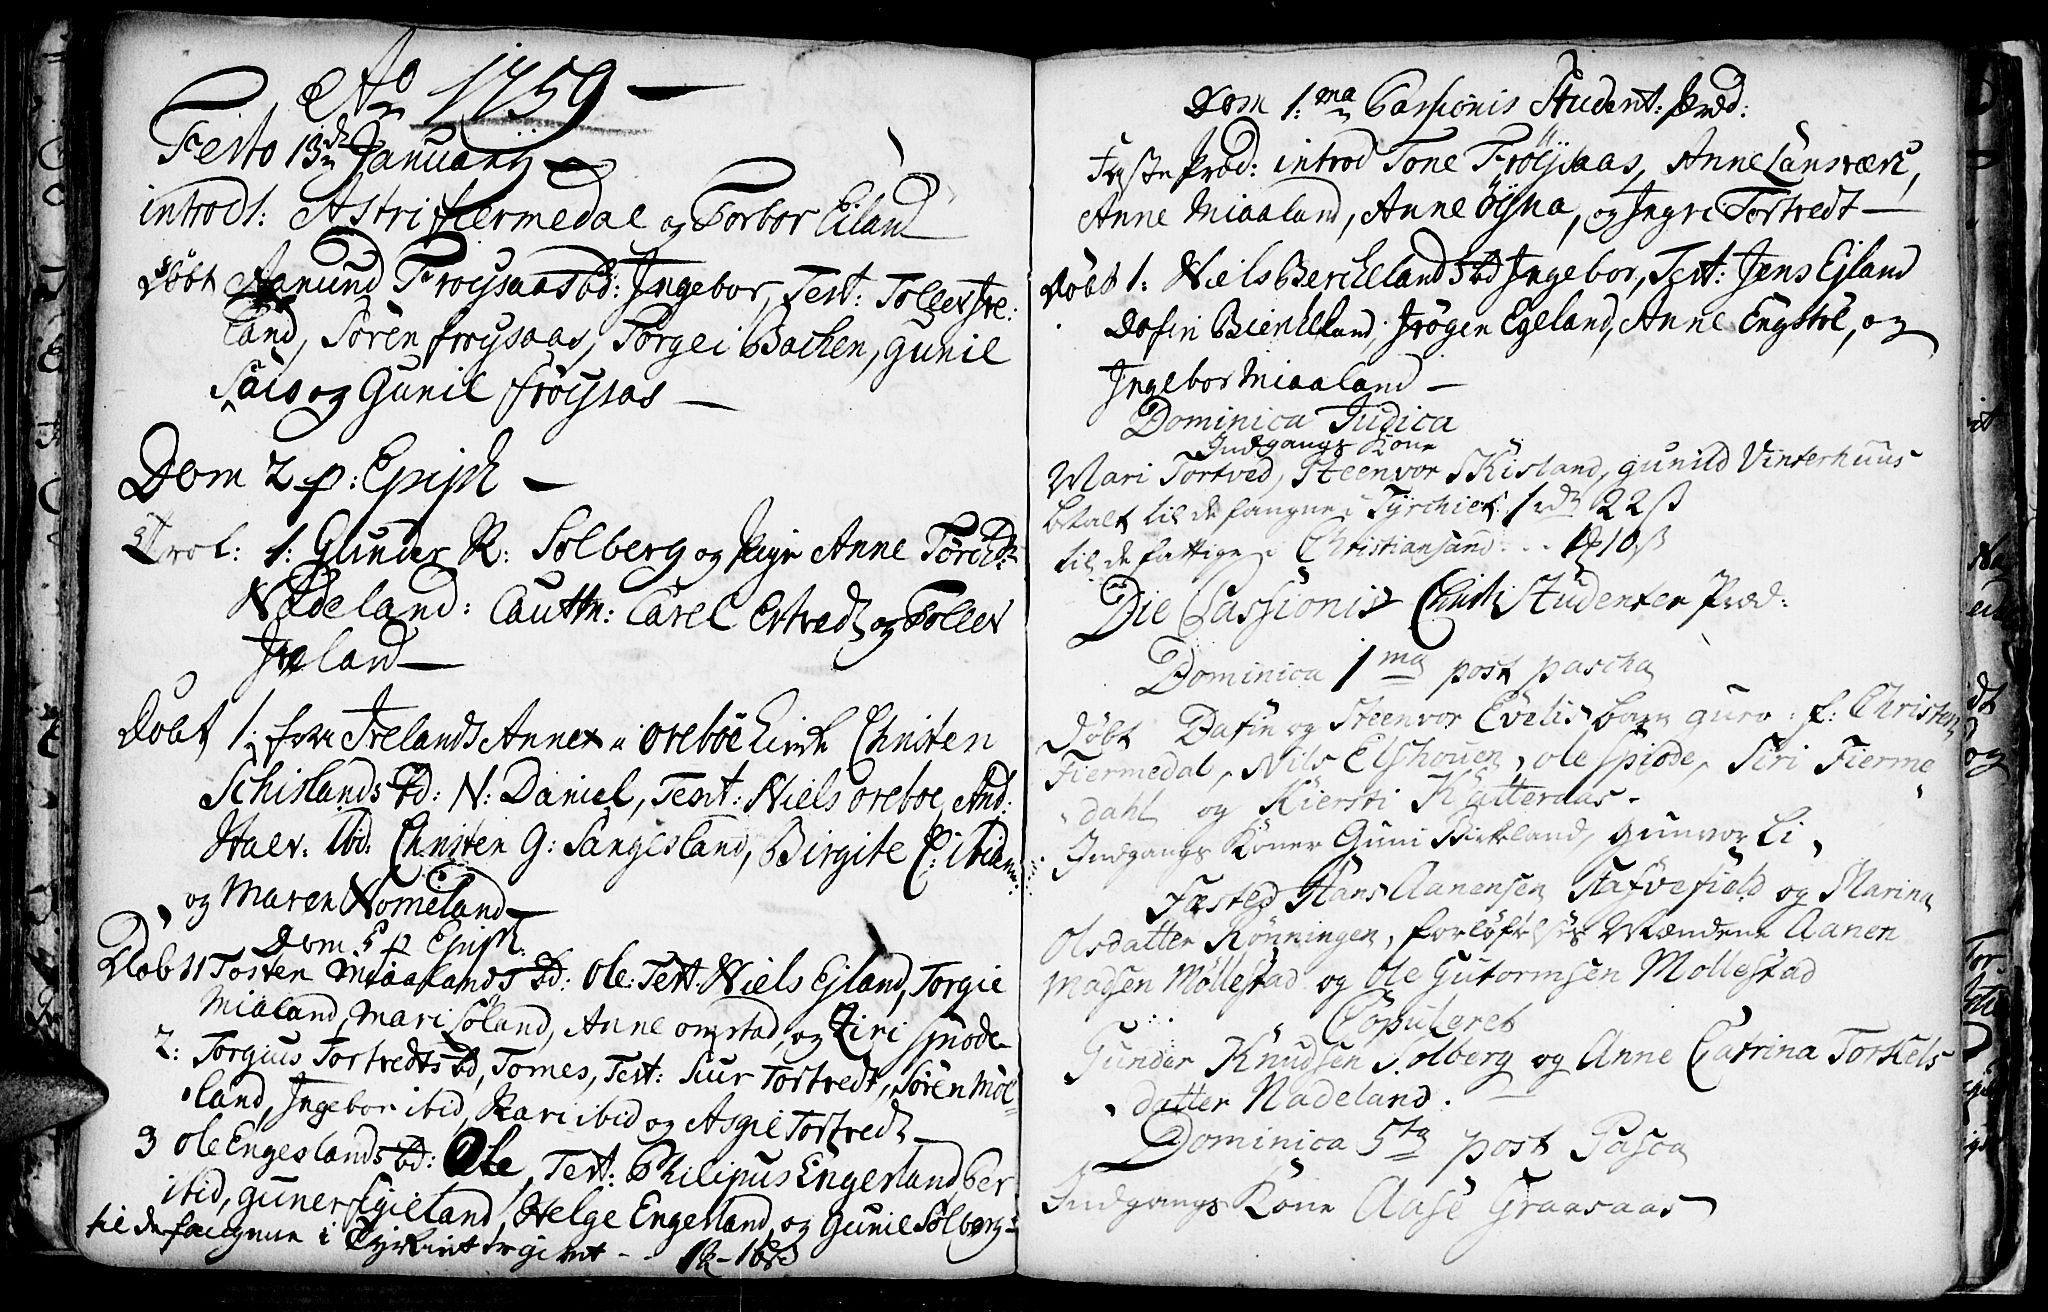 Ao 1759 —
Festo 13de January —
introd: Astri fiermedal og Torbor Eiland
Døbt Aanund Frøysaas bd: Ingebor, Test: Tollev Ire:
land, Søren frøysaas, Torgei Bachen, gunil
Sais og Gunil frøysas —
Dom 2 p: Epiph —
Trol: 1: Gunder K: Solberg og Pige Anne Torkelsd:
Nadeland: Cautn: Carel Ertvedt og Tollev
Ireland —
Døbt 1: fra Irelands Annex i orebøe kirke Christen
Schislands bd: N: Daniel, Test: Niels oreboe, And:
Stalv: ibd: Christen G: Sangesland, Birgite C: ibidem
og Maren Nomeland —
Dom 5 p Epiph.
Døbt 1 Tosten Miaalands bd: Ole: Test: Niels Ejland, Torgie
Mialand, Mari Søland, Anne omstad, og Siri spiode
2: Torgius Tortvedts bd, Tomes, Test: Siur Tortvedt, Søren Mol=
land, Ingebor ibid, Kari ibid og Asgie Tortvedt —
3 ole Engeslands bd: Ole, Test: Philipus Engesland, Per
ibid, guner Egieland, Helge Engesland, og Gunil Solberg
til de fangene i Tyrkiet er givet - - 1 - 16 s
Dom 1:ma Passionis Student: præd:
Faste præd: introd Tone Frøysaas, Anne Lansværk,
Anne Miaaland, Anne Øyna, og Ingri Tortvedt —
Døbt 1: Niels Berchelands bd Ingebor, Test: Jens Ejland
Dafin Bierkeland, Jrøgen Egeland, Anne Engstøl, og
Ingebor Miaaland —
Dominica Judica
Indgangs Kone
Mari Tortved, Steenvor Skisland, gunild Vinterhuus
betalt til de fangne i Tyrchiet 1 rd 22 ß
til de fattige i Christiansand . . . 10 ß
Die Passionis Christi Studenten Præd:
Dominica 1ma post pascha
Døbt Dafin og Steenvor Evelis barn guro: f: Christen
Fiermedal, Nils Elshouen, ole Spiøde, Siri Fierme
dahl og Kiersti Kätteraas.
Indgangs Koner Guni Birkeland, gunvor Li,
Fæsted Hans Aanensen Stafvefield og Marina
Olsdatter Rønningen, forløfvels Mændene Aanen
Madsen Møllestad og Ole Gutormsen Mollestad
Copuleret
Gunder Knudsen Solberg og Anne Catrina Torkels
datter Nadeland.
Dominica 5ta post Pasca
Indgangs Kone Aase Graasaas